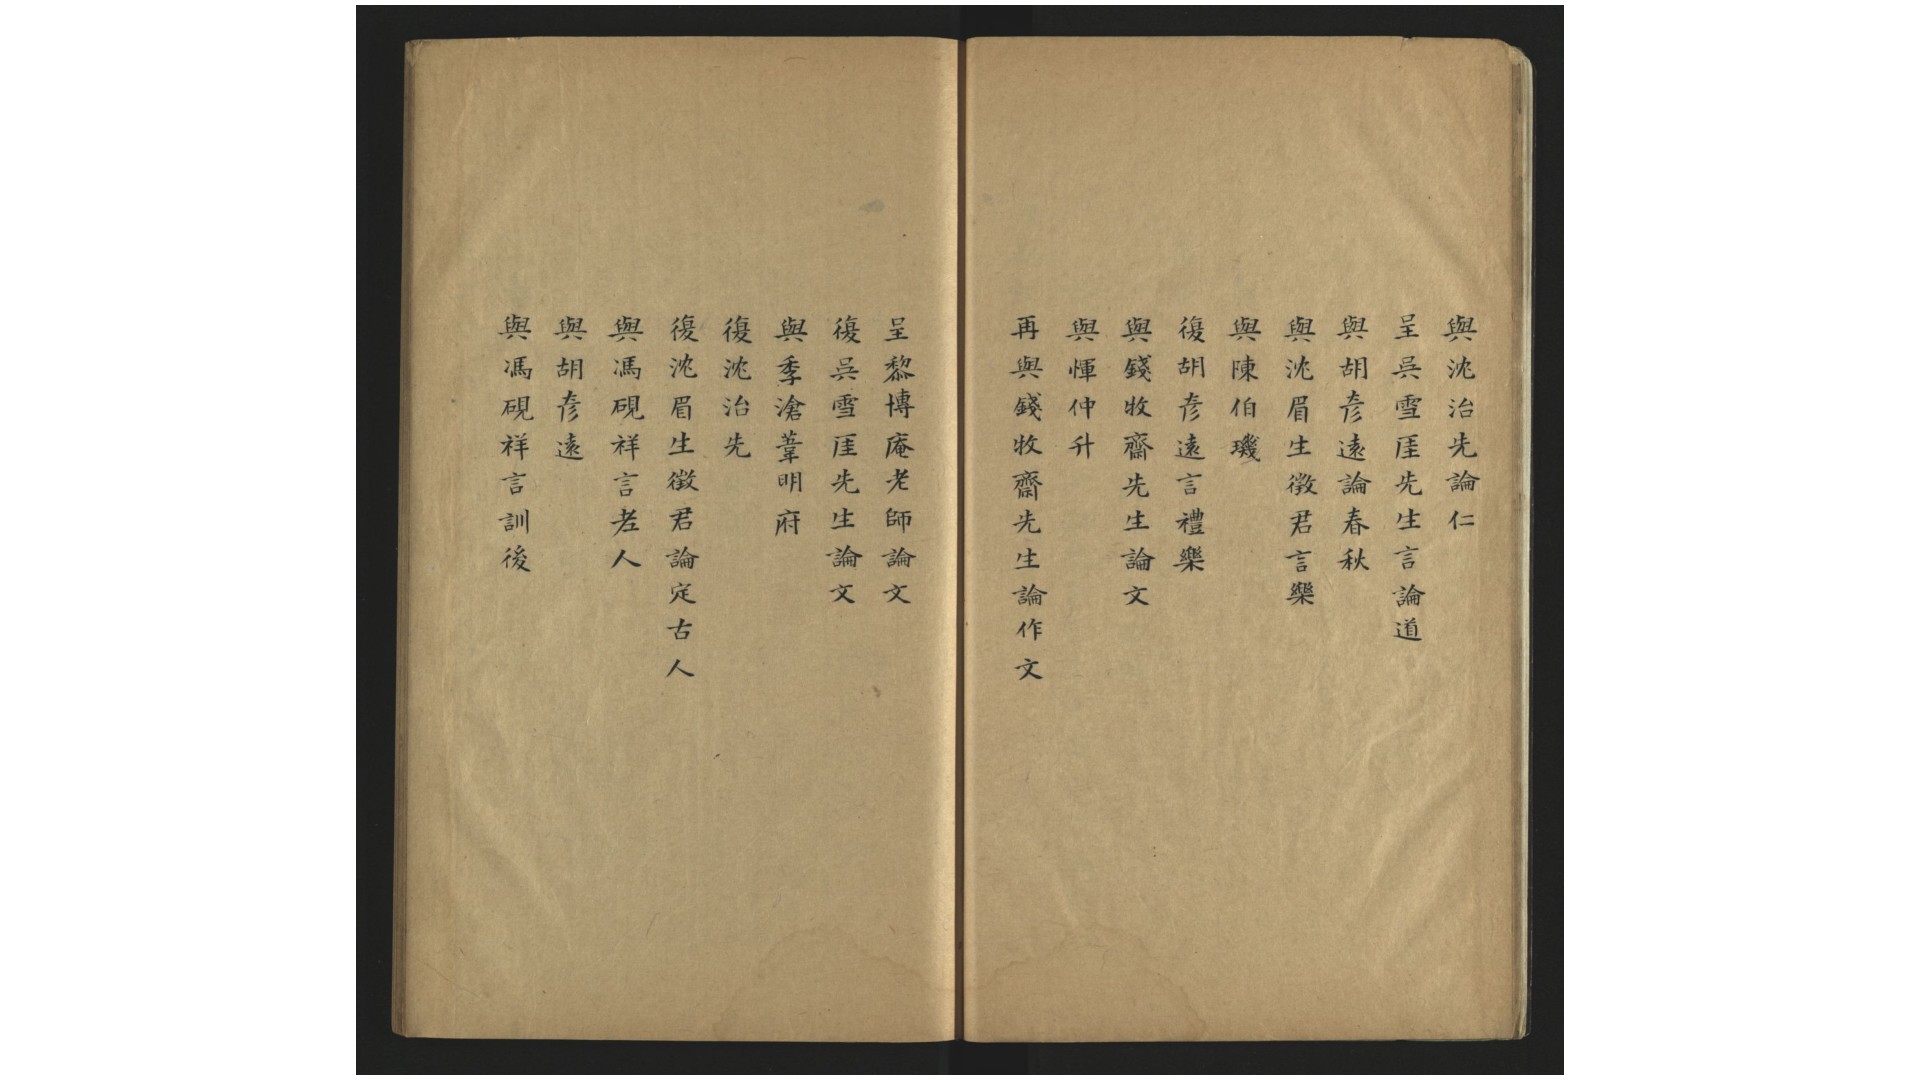 與沈治先論仁
呈吳雪厓先生言論道
與胡彥遠論春秋
與沈眉生徵君言樂
與陳伯璣
復胡彥遠言禮樂
與錢牧齋先生論文
與惲仲升
再與錢牧齋先生論作文
呈黎博庵老師論文
復吳雪厓先生論文
與季滄葦明府
復沈治先
復沈眉生徵君論定古人
與馮硯祥言老人
與胡彥遠
與馮硯祥言訓後